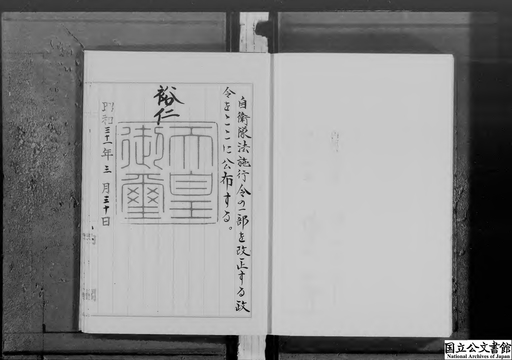 自衛隊法施行令の一部を改正する政
令をここに公布する。
裕仁
天皇
御璽
昭和三十一年三月三十日
国立公文書館
National Archives of Japan